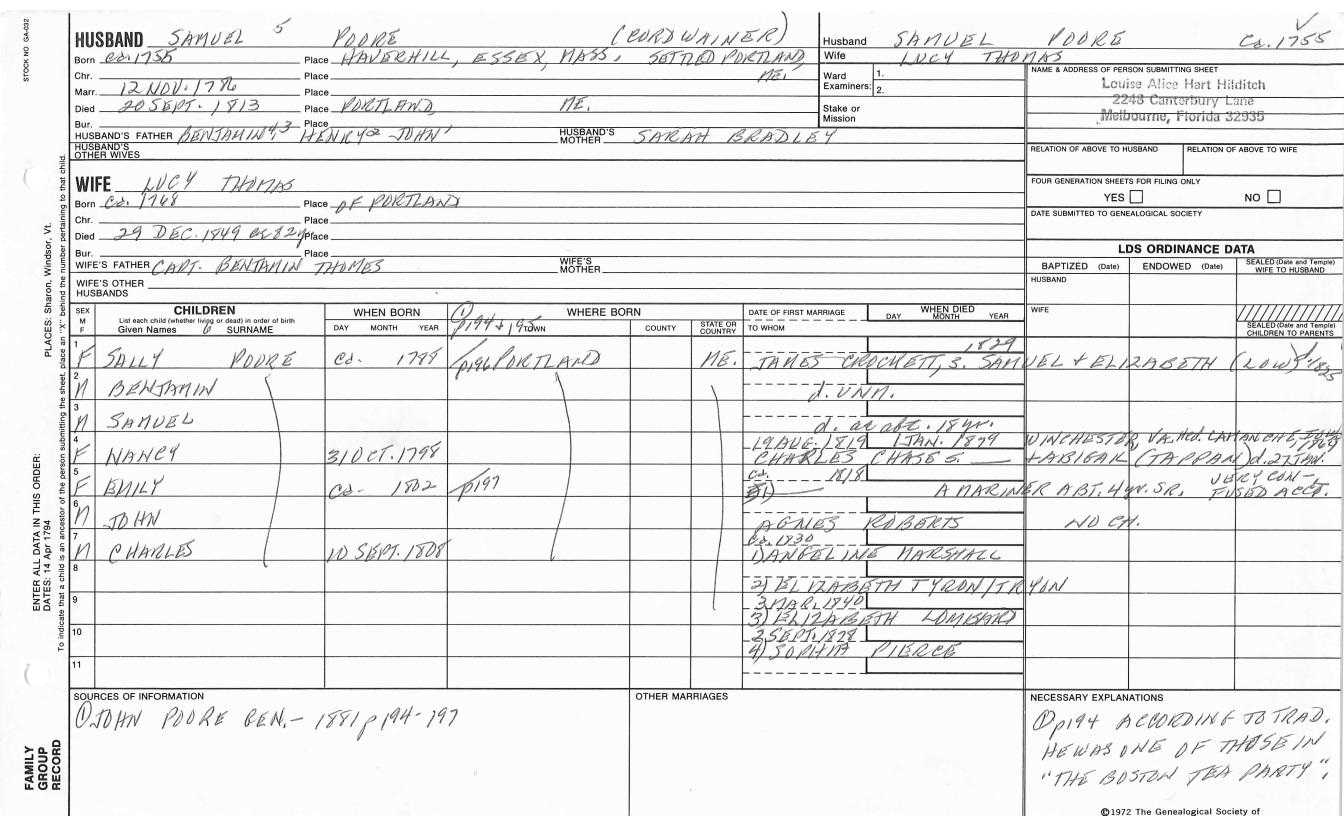 STOCK NO. GA-032
HUSBAND SAMUEL 5 POORE (CORDWAINER)
Born ca. 1755 Place HAVERHILL, ESSEX, MASS. SETTLED PORTLAND, ME.
Chr. Place
Marr. 12 NOV. 1786 Place
Died 20 SEPT. 1813 Place PORTLAND, ME.
Bur. Place
HUSBAND'S FATHER BENJAMIN 4,3 HENRY 2 JOHN 1 HUSBAND'S MOTHER SARAH BRADLEY
HUSBAND'S OTHER WIVES
Husband SAMUEL POORE Ca. 1755
Wife LUCY THOMAS
Ward Examiners: 1. 2.
Stake or Mission
NAME & ADDRESS OF PERSON SUBMITTING SHEET
Louise Alice Hart Hilditch
2248 Canterbury Lane
Melbourne, Florida 32935
RELATION OF ABOVE TO HUSBAND RELATION OF ABOVE TO WIFE
FOUR GENERATION SHEETS FOR FILING ONLY
YES NO
DATE SUBMITTED TO GENEALOGICAL SOCIETY
WIFE LUCY THOMAS
Born Ca. 1768 Place OF PORTLAND
Chr. Place
Died 29 DEC. 1849 ae 82y Place
Bur. Place
WIFE'S FATHER CAPT. BENJAMIN THOMES WIFE'S MOTHER
WIFE'S OTHER HUSBANDS
LDS ORDINANCE DATA
BAPTIZED (Date) ENDOWED (Date) SEALED (Date and Temple) WIFE TO HUSBAND
HUSBAND
WIFE
SEALED (Date and Temple) CHILDREN TO PARENTS
SEX M F CHILDREN WHEN BORN ① WHERE BORN DATE OF FIRST MARRIAGE WHEN DIED
List each child (whether living or dead) in order of birth p194 + 195 DAY MONTH YEAR
Given Names 6 SURNAME DAY MONTH YEAR TOWN COUNTY STATE OR COUNTRY TO WHOM
1 F SALLY POORE Ca. 1788 p196 PORTLAND ME. 1829 JAMES CROCKETT, S. SAMUEL + ELIZABETH (LOW)
2 M BENJAMIN d. UNM.
3 M SAMUEL d. ae abt. 18 yr.
4 F NANCY 31 OCT. 1798 19 AUG. 1819 1 JAN. 1879 WINCHESTER, VA.
CHARLES CHASE S. + ABIGAIL (TAPPAN) d. 27 JAN.
5 F EMILY Ca. 1802 p197 Ca. 1818 A MARINER ABT. 4 yr. SR. VERY CONFUSED ACCT.
6 M JOHN AGNES ROBERTS NO CH.
7 M CHARLES 10 SEPT. 1808 Ca. 1830
1) ANGELINE MARSHALL
8
2) ELIZABETH TYRON/TRYON
9 3 MAR. 1840
3) ELIZABETH LOMBARD
10 2 SEPT. 1878
4) SOPHIA PIERCE
11
SOURCES OF INFORMATION
① JOHN POORE GEN. - 1881 p194-197
OTHER MARRIAGES
NECESSARY EXPLANATIONS
① p194 ACCORDING TO TRAD.
HE WAS ONE OF THOSE IN
"THE BOSTON TEA PARTY".
©1972 The Genealogical Society of
FAMILY GROUP RECORD
ENTER ALL DATA IN THIS ORDER:
DATES: 14 Apr 1794
PLACES: Sharon, Windsor, Vt.
To indicate that a child is an ancestor of the person submitting the sheet, place an "X" behind the number pertaining to that child.